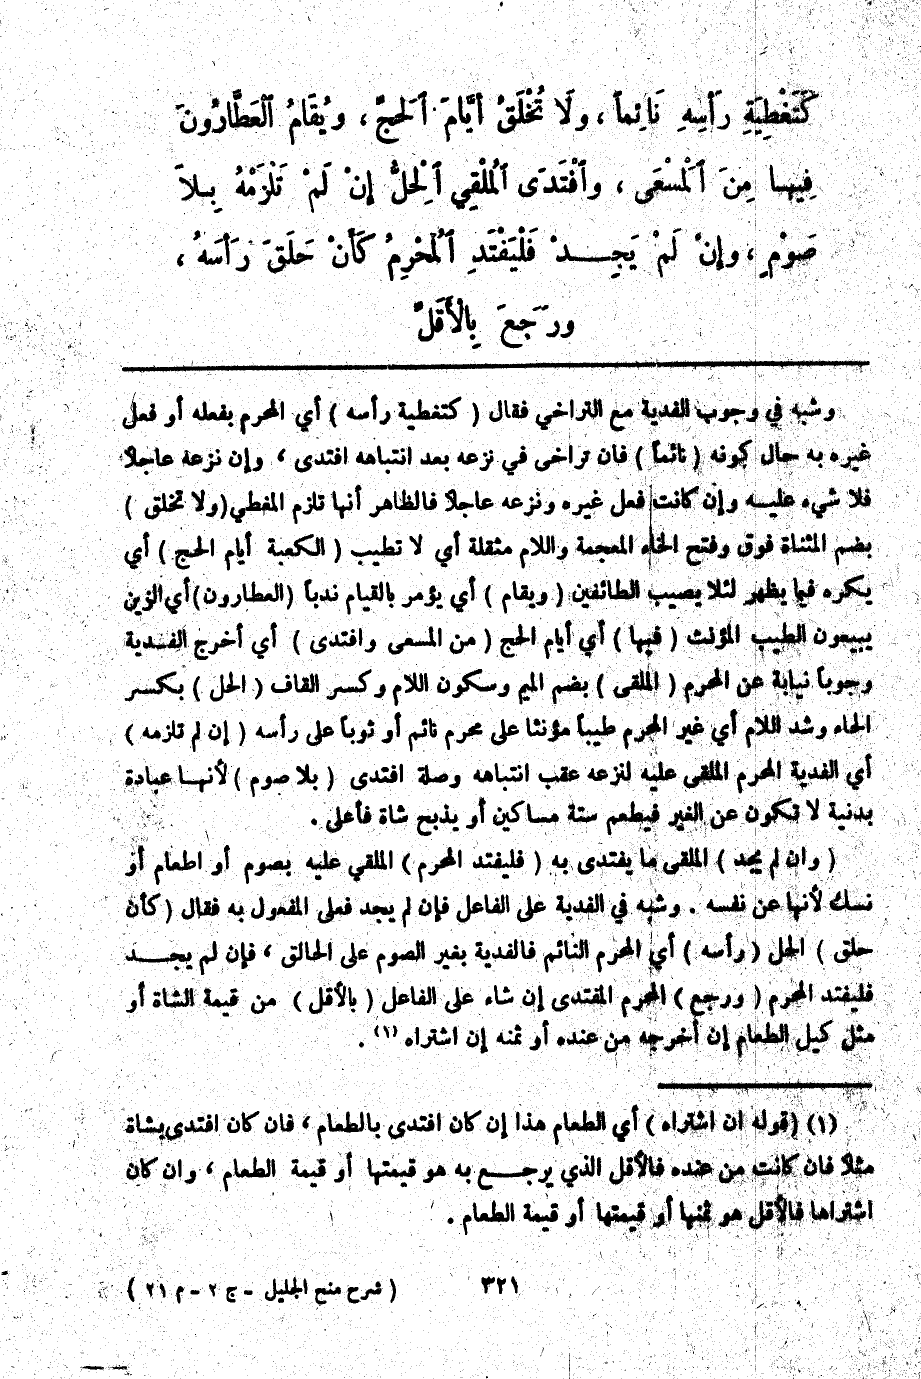 كَتَغْطِيَةِ رَأْسِهِ نَائِماً ، ولَا تُخْلَقُ أَيَّامَ ٱلْحَجِّ ، ويُقَامُ ٱلْعَطَّارُونَ
فِيهَا مِنَ ٱلْمَسْعَى ، وٱفْتَدَى ٱلْمُلْقِي ٱلْحِلُّ إِنْ لَمْ تَلْزَمْهُ بِلاَ
صَوْمٍ ، وإِنْ لَمْ يَجِدْ فَلْيَفْتَدِ ٱلْمُحْرِمُ كَأَنْ حَلَقَ رَأْسَهُ ،
ورَجَعَ بِالْأَقَلِّ
وشبه في وجوب الفدية مع التراخي فقال ( كتغطية رأسه ) أي المحرم بفعله أو فعل
غيره به حال كونه ( نائماً ) فان تراخى في نزعه بعد انتباهه افتدى ، وإن نزعه عاجلاً
فلا شيء عليه وإن كانت فعل غيره ونزعه عاجلاً فالظاهر أنها تلزم المغطي (ولا تخلق )
بضم المثناة فوق وفتح الخاء المعجمة واللام مثقلة أي لا تطيب ( الكعبة أيام الحج ) أي
يكره فيما يظهر لئلا يصيب الطائفين ( ويقام ) أي يؤمر بالقيام ندباً (العطارون) أي الذين
يبيعون الطيب المؤنث ( فيها ) أي أيام الحج ( من المسعى وافتدى ) أي أخرج الفدية
وجوباً نيابة عن المحرم ( الملقى ) بضم الميم وسكون اللام وكسر القاف ( الحل ) بكسر
الحاء وشد اللام أي غير المحرم طيباً مؤنثا على محرم نائم أو ثوباً على رأسه ( إن لم تلزمه )
أي الفدية المحرم الملقى عليه لنزعه عقب انتباهه وصلة افتدى ( بلا صوم ) لأنها عبادة
بدنية لا تكون عن الغير فيطعم ستة مساكين أو يذبح شاة فأعلى .
( وان لم يجد ) الملقى ما يفتدى به ( فليفتد المحرم ) الملقي عليه بصوم أو اطعام أو
نسك لأنها عن نفسه . وشبه في الفدية على الفاعل فإن لم يجد فعلى المفعول به فقال ( كأن
حلق ) الحل ( رأسه ) أي المحرم النائم فالفدية بغير الصوم على الحالق ، فإن لم يجد
فليفتد المحرم ( ورجع ) المحرم المفتدى إن شاء على الفاعل ( بالأقل ) من قيمة الشاة أو
مثل كيل الطعام إن أخرجه من عنده أو ثمنه إن اشتراه (١) .
(١) (قوله ان اشتراه ) أي الطعام هذا إن كان افتدى بالطعام ، فان كان افتدى بشاة
مثلاً فان كانت من عنده فالأقل الذي يرجع به هو قيمتها أو قيمة الطعام ، وان كان
اشتراها فالأقل هو ثمنها أو قيمتها أو قيمة الطعام .
٣٢١ ( شرح منح الجليل - ج ٢ - م ٢١ )